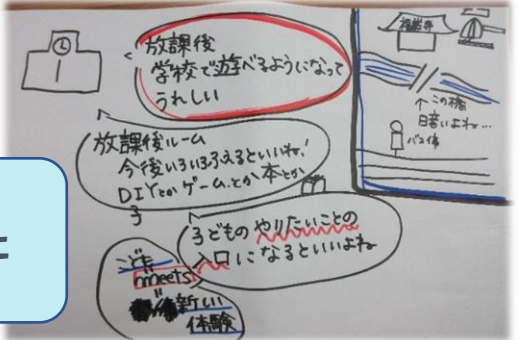 放課後
学校で遊べるようになって
うれしい
放課後ルーム
今後いろいろふえるといいね!
DIYとかゲームとか本とか
子どものやりたいことの
入口になるといいよね
子ども
meets
新しい
体験
↑この橋
暗いよね…
バス停